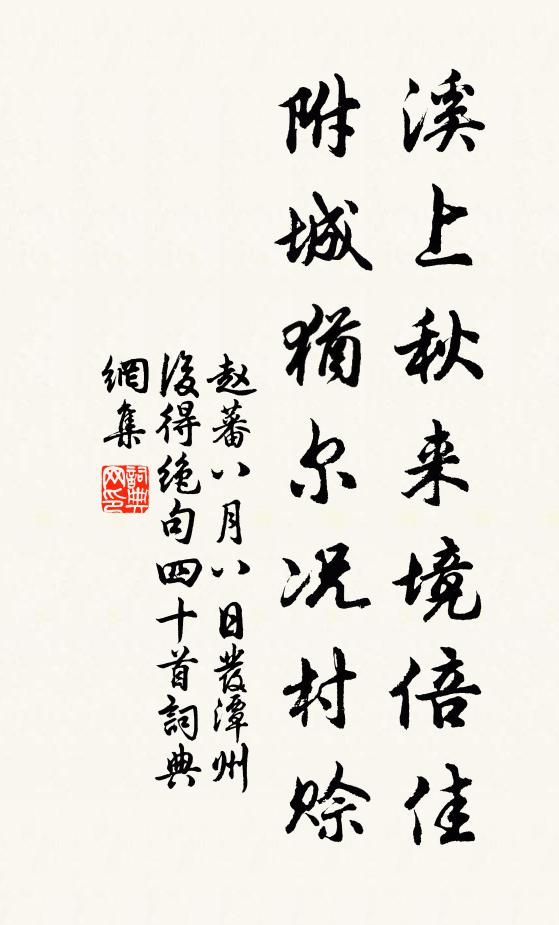 溪上秋来境倍佳
附城犹尔况村赊
赵蕃八月八日發潭州
後得绝句四十首詞典
網集
詞典网印